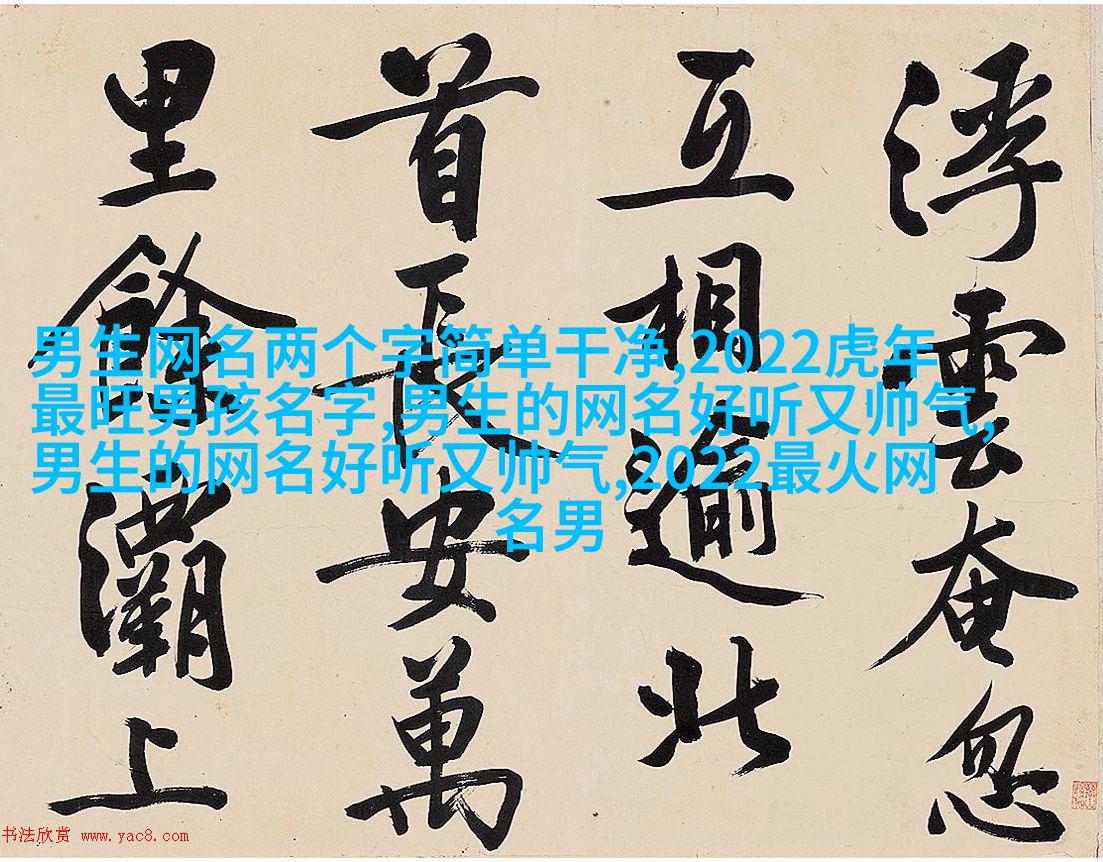 浮雲奄忽
互相逾北
首長安萬
里餘灞上
男生网名两个字简单干净,2022虎年
最旺男孩名字,男生的网名好听又帅气,
男生的网名好听又帅气,2022最火网
名男
书法欣赏 www.yac8.com